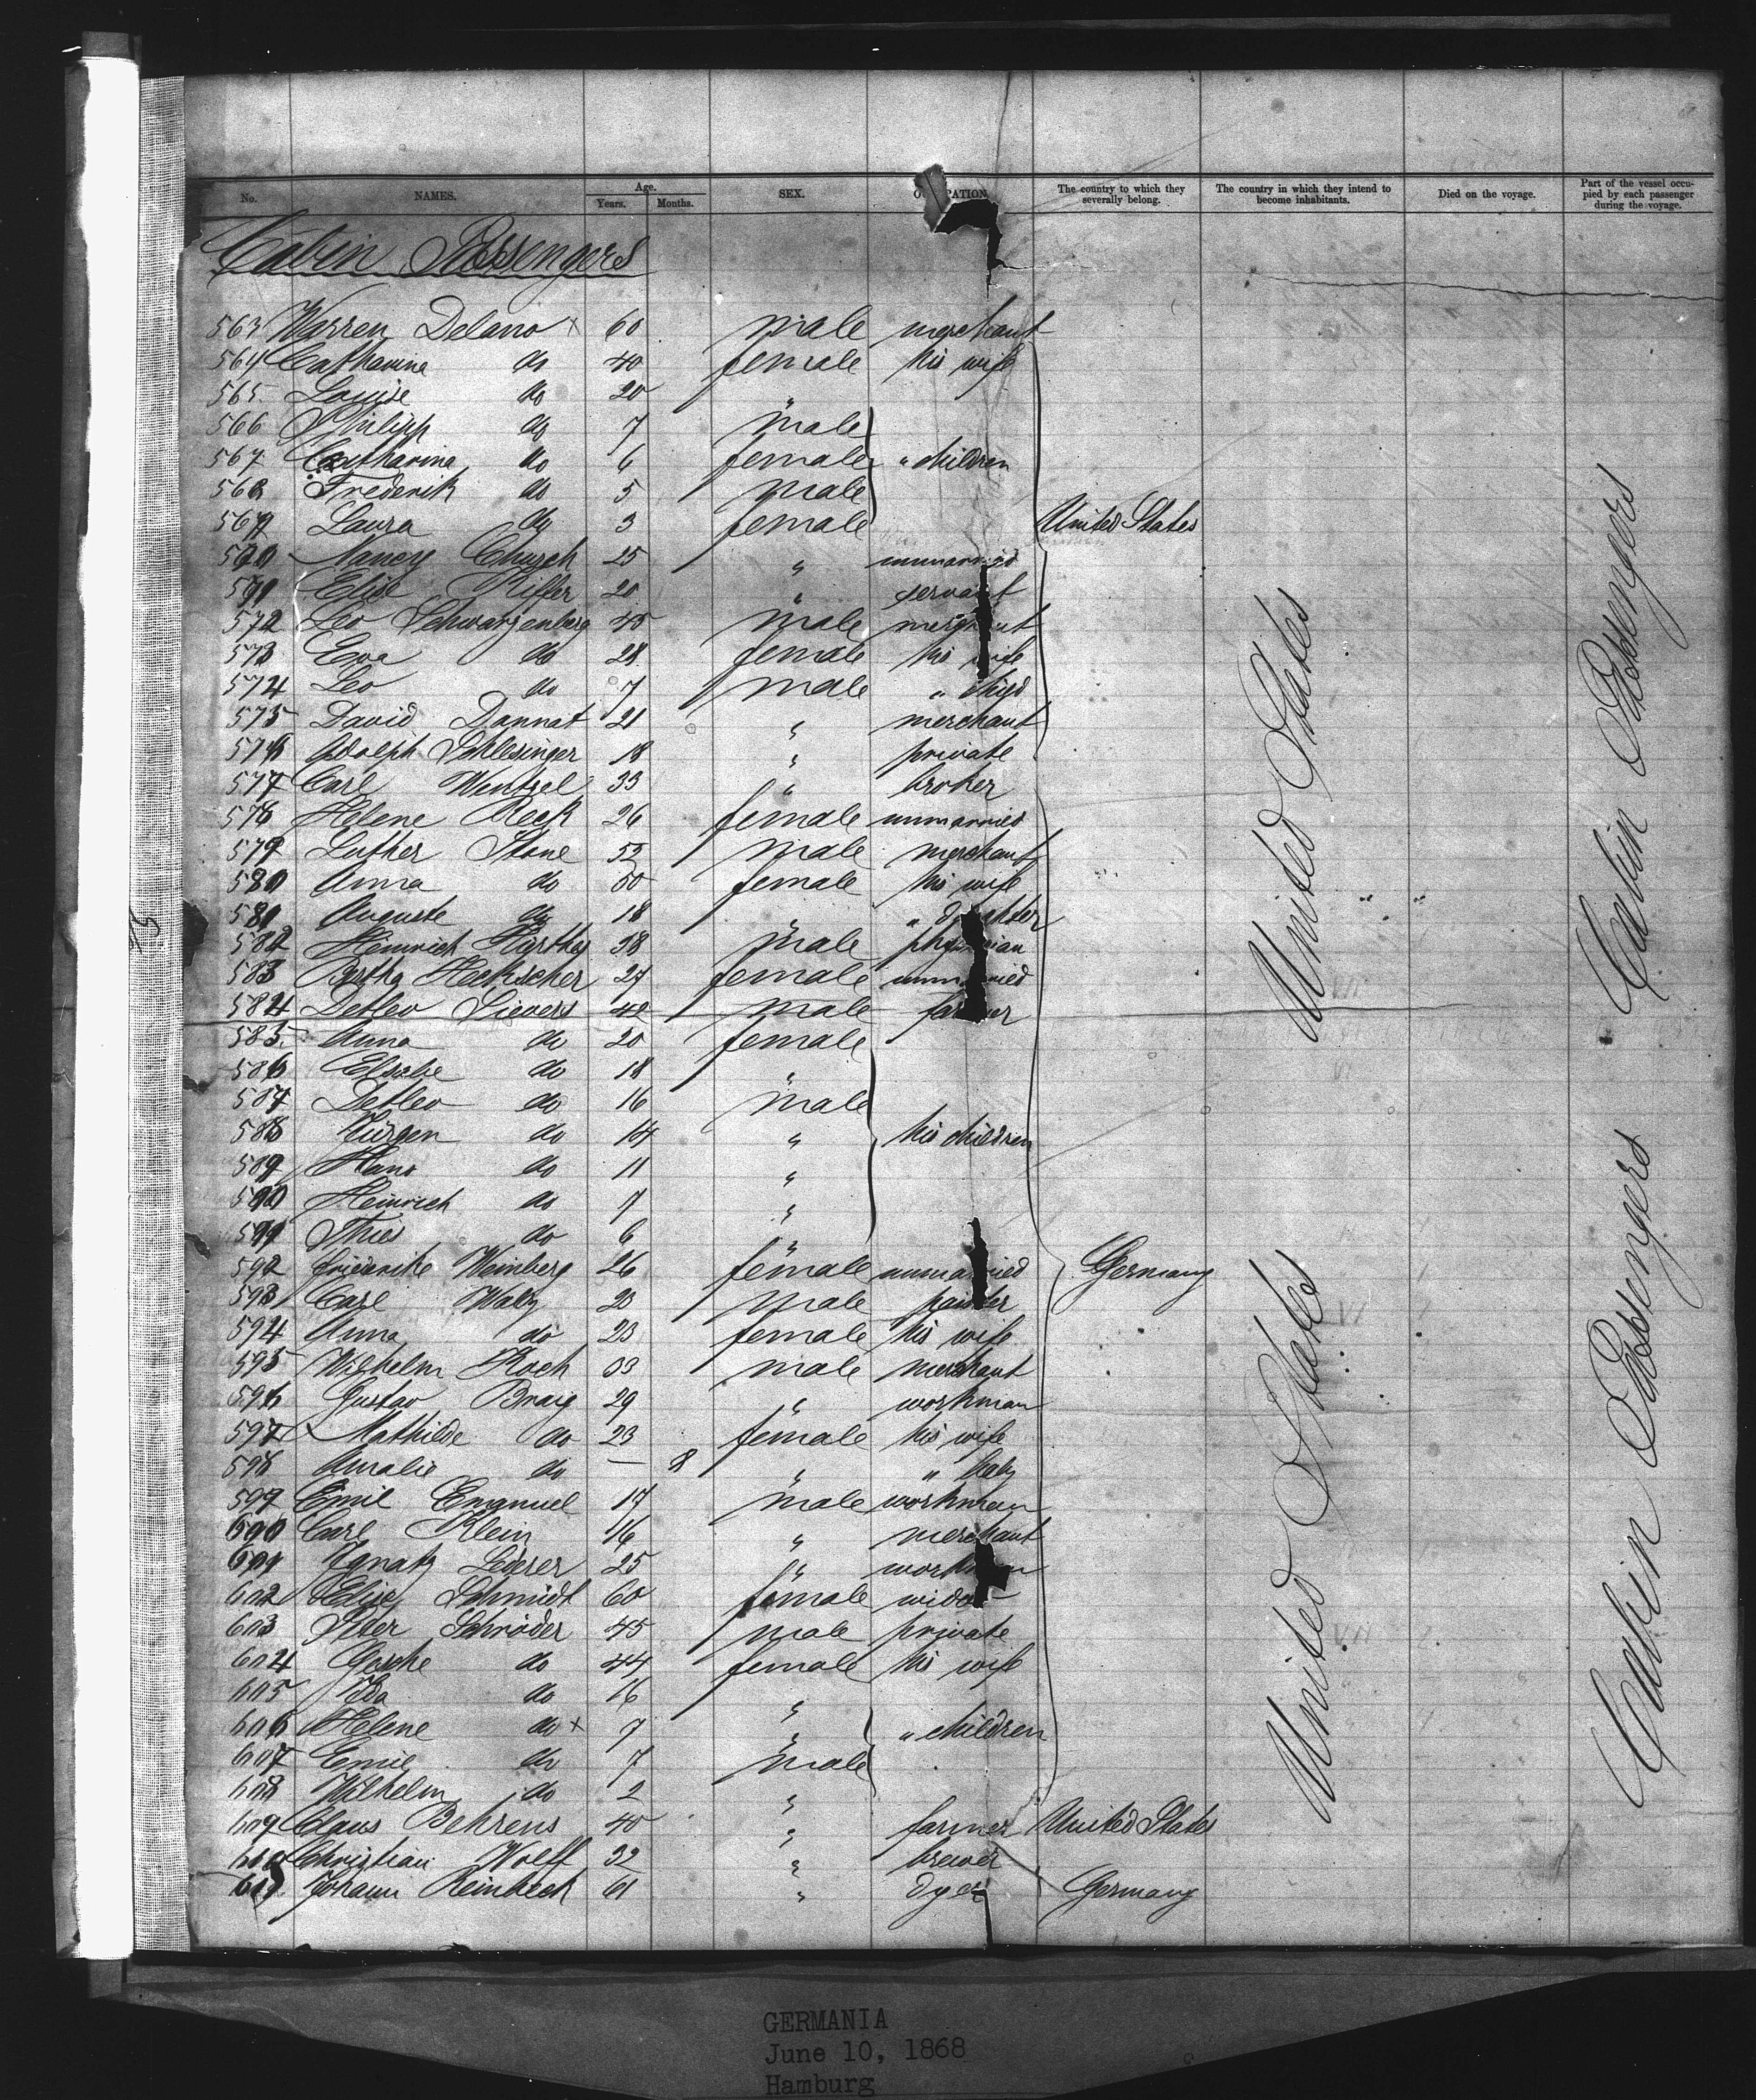 No. NAMES. Age. Years. Months. SEX. The country to which they severally belong. The country in which they intend to become inhabitants. Died on the voyage. Part of the vessel occupied by each passenger during the voyage.
Cabin Passengers
563 Warren Delano x 60 male merchant
564 Catharina do 40 female his wife
565 Louise do 20 "
566 Philipp do 7 male
567 Catharina do 6 female " children
568 Frederik do 5 male
569 Laura do 3 female United States
570 Nancy Church 25 " unmarried
571 Elise Riffer 20 " servant
572 Leo Schwarzenberg 45 male merchant
573 Ewa do 28 female his wife
574 Leo do 7 male " child
575 David Dannat 21 " merchant
576 Adolph Schlesinger 18 " private
577 Carl Wentzel 33 " broker
578 Helene Reck 26 female unmarried
579 Luther Stone 52 male merchant
580 Anna do 50 female his wife
581 Auguste do 18 " " daughter
582 Heinrich 38 male physician
583 Bertha Heckscher 27 female unmarried
584 Detlev Sievers 48 male farmer
585 Anna do 20 female
586 Elsabe do 18 "
587 Detlev do 16 male
588 Jürgen do 14 " his children
589 Hans do 11 "
590 Heinrich do 7 "
591 Thies do 6 "
592 Friederike Weinberg 26 female unmarried Germany
593 Carl Walz 28 male painter
594 Anna do 23 female his wife
595 Wilhelm Koch 33 male merchant
596 Gustav Braig 29 " workman
597 Mathilde do 23 female his wife
598 Amalie do — 8 " " baby
599 Emil Emanuel 17 male workman
600 Carl Klein 16 " merchant
601 Ignatz Lederer 25 " workman
602 Elise Schmidt 60 female widow
603 Peter Schröder 45 male private
604 Gesche do 44 female his wife
605 Ida do 16 "
606 Helene do x 7 " " children
607 Emil do 7 male
608 Wilhelm do 2 "
609 Claus Behrens 40 " farmer United States
610 Christian Wolff 32 " brewer
611 Johann Reinbeck 61 " dyer Germany
United States
United States
Cabin Passengers
Cabin Passengers
GERMANIA
June 10, 1868
Hamburg